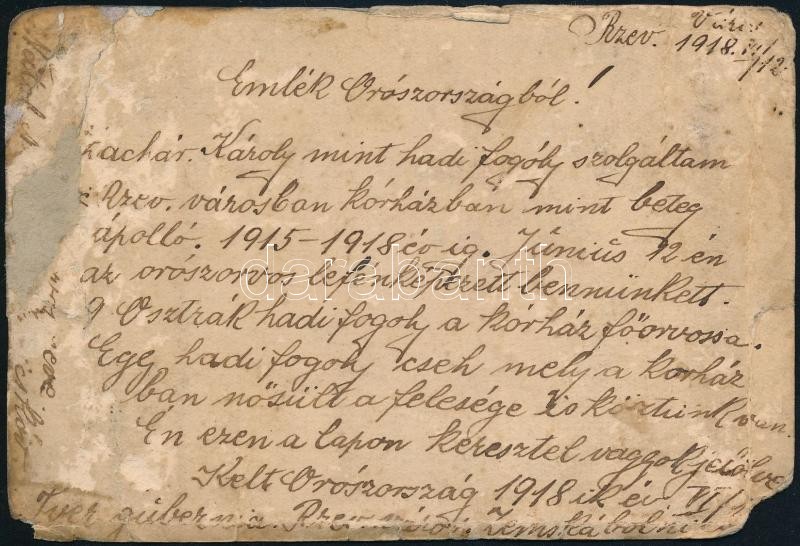 Rzev. 1918. VI/12
Emlék Orószországból!
Zachár. Károly mint hadi fogóly szolgáltam
Rzev. városban kórházban mint beteg
ápolló. 1915-1918 év ig. Június 12 én
az orószorvos lefénképezett bennünkett.
9 Osztrák hadi fogoly a kórház főorvossa.
Egy hadi fogoly cseh mely a korház
ban nősült a felesége is köztünk van.
Én ezen a lapon keresztel vaggok jelölve
Kelt Orószország 1918 ik év VI/1
Tver gubernia. Rzev városi Zemska bolni
darabanth